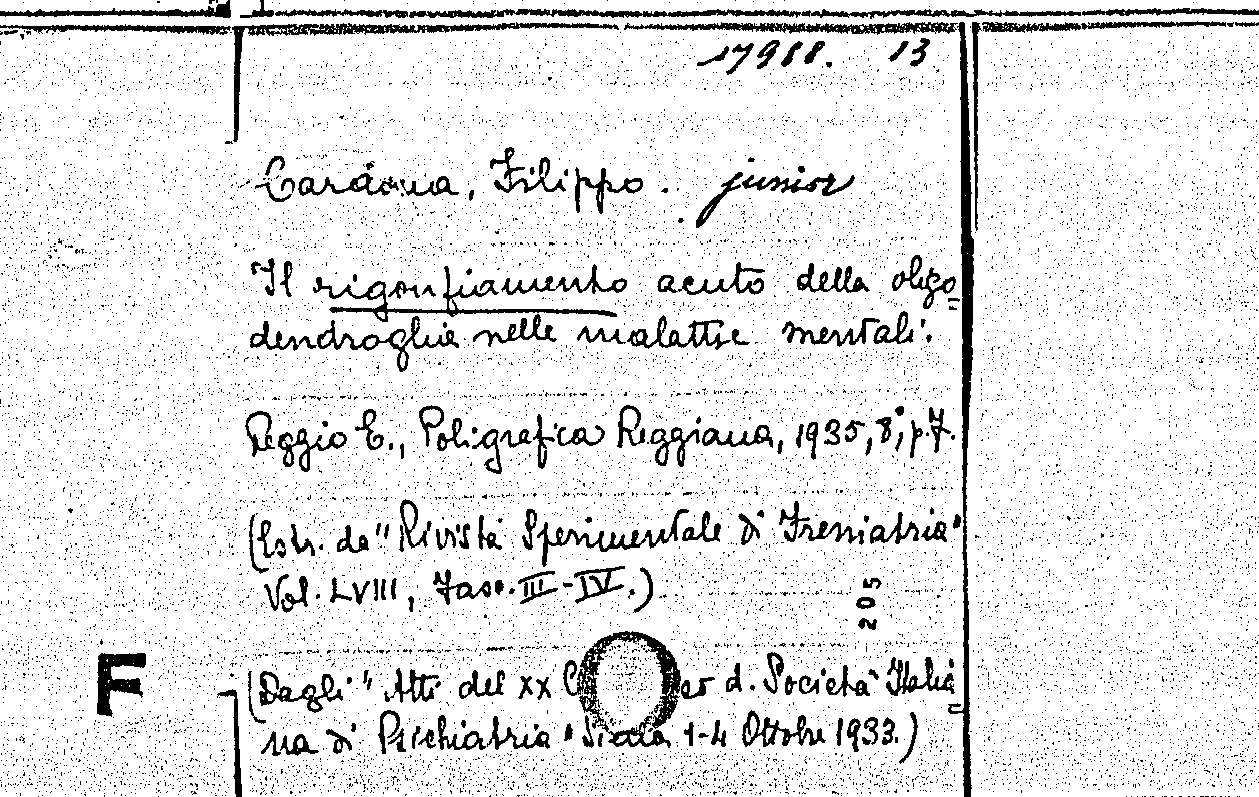 17988. 13
Caràova, Filippo. junior
Il rigonfiamento acuto della oligo=
dendroglia nelle malattie mentali.
Reggio E., Poligrafica Reggiana, 1935, 8°, p. 7.
(Estr. da "Rivista Sperimentale di Freniatria"
Vol. LVIII, Fasc. III-IV.)
205
F
(Dagli "Atti del XX d. Società Italia=
na di Psichiatria" Siena 1-4 Ottobre 1933.)